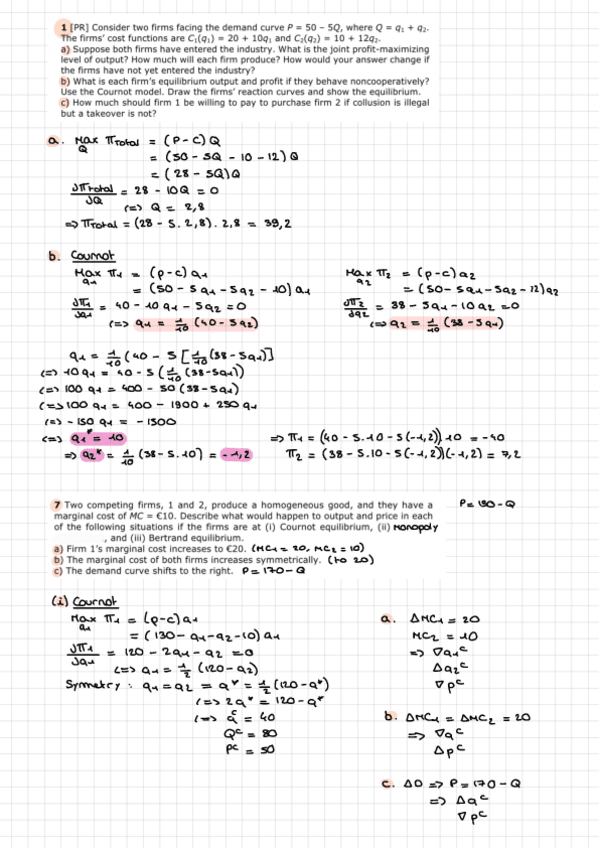 1 [PR] Consider two firms facing the demand curve P = 50 – 5Q, where Q = q₁ + q₂.
The firms' cost functions are C₁(q₁) = 20 + 10q₁ and C₂(q₂) = 10 + 12q₂.
a) Suppose both firms have entered the industry. What is the joint profit-maximizing
level of output? How much will each firm produce? How would your answer change if
the firms have not yet entered the industry?
b) What is each firm's equilibrium output and profit if they behave noncooperatively?
Use the Cournot model. Draw the firms' reaction curves and show the equilibrium.
c) How much should firm 1 be willing to pay to purchase firm 2 if collusion is illegal
but a takeover is not?
a. Max Q πTotal = (P-C)Q
= (50-5Q-10-12)Q
= (28-5Q)Q
∂πTotal/∂Q = 28 - 10Q = 0
(=) Q = 2,8
=> πTotal = (28-5.2,8).2,8 = 39,2
b. Cournot
Max q₁ π₁ = (p-c)q₁
= (50-5q₁-5q₂-10)q₁
∂π₁/∂q₁ = 40-10q₁-5q₂=0
(=) q₁ = 1/10 (40-5q₂)
Max q₂ π₂ = (p-c)q₂
= (50-5q₁-5q₂-12)q₂
∂π₂/∂q₂ = 38-5q₁-10q₂=0
(=) q₂ = 1/10 (38-5q₁)
q₁ = 1/10 (40 - 5 [1/10 (38-5q₁)]
(=) 10q₁ = 40 - 5 (1/10 (38-5q₁))
(=) 100q₁ = 400 - 50 (38-5q₁)
(=) 100q₁ = 400 - 1900 + 250q₁
(=) -150q₁ = -1500
(=) q₁* = 10
=> q₂* = 1/10 (38-5.10) = -1,2
=> π₁ = (40-5.10-5(-1,2)).10 = -40
π₂ = (38-5.10-5(-1,2))(-1,2) = 7,2
7 Two competing firms, 1 and 2, produce a homogeneous good, and they have a
marginal cost of MC = €10. Describe what would happen to output and price in each
of the following situations if the firms are at (i) Cournot equilibrium, (ii) monopoly
, and (iii) Bertrand equilibrium.
P=130-Q
a) Firm 1's marginal cost increases to €20. (MC₁ = 20, MC₂ = 10)
b) The marginal cost of both firms increases symmetrically. (to 20)
c) The demand curve shifts to the right. P=170-Q
(i) Cournot
Max q₁ π₁ = (p-c)q₁
= (130-q₁-q₂-10)q₁
∂π₁/∂q₁ = 120-2q₁-q₂=0
(=) q₁ = 1/2 (120-q₂)
Symmetry: q₁=q₂ = q* = 1/2 (120-q*)
(=) 2q* = 120-q*
(=) qᶜ = 40
Qᶜ = 80
Pᶜ = 50
a. ΔMC₁ = 20
MC₂ = 10
=> ∇q₁ᶜ
Δq₂ᶜ
∇pᶜ
b. ΔMC₁ = ΔMC₂ = 20
=> ∇qᶜ
Δpᶜ
c. ΔD => P=170-Q
=> Δqᶜ
∇pᶜ